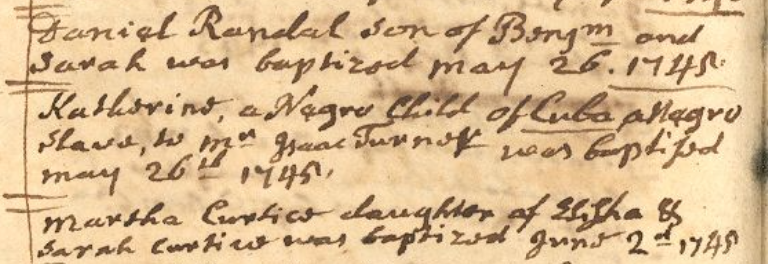 Daniel Randal Son of Benjm and
Sarah was baptized may 26. 1745.
Katherine, a Negro Child of Cuba a Negro
Slave, to mr Isaac Turner was baptised
may 26th 1745.
Martha Curtice daughter of Elisha &
Sarah Curtice was baptized June 2d 1745